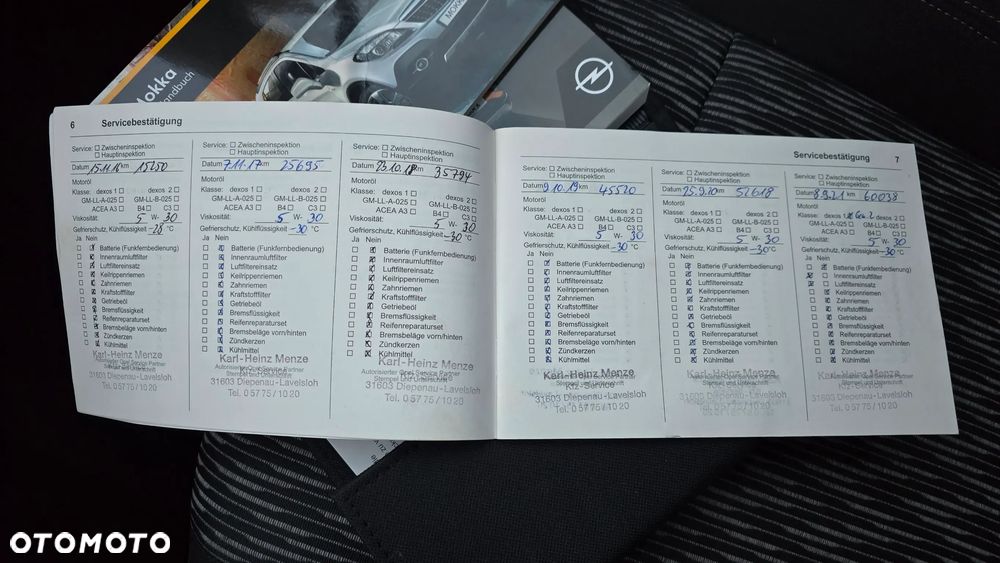 Mokka
6 Servicebestätigung
Service: ☐ Zwischeninspektion
☐ Hauptinspektion
Datum 15.11.16 km 15250
Motoröl
Klasse: dexos 1 ☐ dexos 2 ☐
GM-LL-A-025 ☐ GM-LL-B-025 ☐
ACEA A3 ☐ B4 ☐ C3 ☐
Viskosität: 5 W- 30
Gefrierschutz, Kühlflüssigkeit -28 °C
Ja Nein
☐ ☒ Batterie (Funkfernbedienung)
☐ ☒ Innenraumluftfilter
☐ ☒ Luftfiltereinsatz
☐ ☒ Keilrippenriemen
☐ ☒ Zahnriemen
☐ ☒ Kraftstofffilter
☐ ☒ Getriebeöl
☐ ☒ Bremsflüssigkeit
☐ ☒ Reifenreparaturset
☐ ☒ Bremsbeläge vorn/hinten
☐ ☒ Zündkerzen
☐ ☒ Kühlmittel
Karl-Heinz Menze
Autorisierter Opel Service Partner
31603 Diepenau-Lavelsloh
Tel. 05775/1020
Service: ☐ Zwischeninspektion
☐ Hauptinspektion
Datum 7.11.17 km 25695
Motoröl
Klasse: dexos 1 ☐ dexos 2 ☐
GM-LL-A-025 ☐ GM-LL-B-025 ☐
ACEA A3 ☐ B4 ☐ C3 ☐
Viskosität: 5 W- 30
Gefrierschutz, Kühlflüssigkeit -30 °C
Ja Nein
☐ ☒ Batterie (Funkfernbedienung)
☐ ☒ Innenraumluftfilter
☐ ☒ Luftfiltereinsatz
☐ ☒ Keilrippenriemen
☐ ☒ Zahnriemen
☐ ☒ Kraftstofffilter
☐ ☒ Getriebeöl
☐ ☒ Bremsflüssigkeit
☐ ☒ Reifenreparaturset
☐ ☒ Bremsbeläge vorn/hinten
☐ ☒ Zündkerzen
☐ ☒ Kühlmittel
Karl-Heinz Menze
Autorisierter Opel Service Partner
31603 Diepenau-Lavelsloh
Tel. 05775/1020
Service: ☐ Zwischeninspektion
☐ Hauptinspektion
Datum 23.10.18 km 35794
Motoröl
Klasse: dexos 1 ☐ dexos 2 ☐
GM-LL-A-025 ☐ GM-LL-B-025 ☐
ACEA A3 ☐ B4 ☐ C3 ☐
Viskosität: 5 W- 30
Gefrierschutz, Kühlflüssigkeit -30 °C
Ja Nein
☐ ☒ Batterie (Funkfernbedienung)
☐ ☒ Innenraumluftfilter
☐ ☒ Luftfiltereinsatz
☐ ☒ Keilrippenriemen
☐ ☒ Zahnriemen
☐ ☒ Kraftstofffilter
☐ ☒ Getriebeöl
☐ ☒ Bremsflüssigkeit
☐ ☒ Reifenreparaturset
☐ ☒ Bremsbeläge vorn/hinten
☐ ☒ Zündkerzen
☐ ☒ Kühlmittel
Karl-Heinz Menze
Autorisierter Opel Service Partner
Stempel und Unterschrift
31603 Diepenau-Lavelsloh
Tel. 05775/1020
Servicebestätigung 7
Service: ☐ Zwischeninspektion
☐ Hauptinspektion
Datum 9.10.19 km 45520
Motoröl
Klasse: dexos 1 ☐ dexos 2 ☐
GM-LL-A-025 ☐ GM-LL-B-025 ☐
ACEA A3 ☐ B4 ☐ C3 ☐
Viskosität: 5 W- 30
Gefrierschutz, Kühlflüssigkeit -30 °C
Ja Nein
☐ ☒ Batterie (Funkfernbedienung)
☐ ☒ Innenraumluftfilter
☐ ☒ Luftfiltereinsatz
☐ ☒ Keilrippenriemen
☐ ☒ Zahnriemen
☐ ☒ Kraftstofffilter
☐ ☒ Getriebeöl
☐ ☒ Bremsflüssigkeit
☐ ☒ Reifenreparaturset
☐ ☒ Bremsbeläge vorn/hinten
☐ ☒ Zündkerzen
☐ ☒ Kühlmittel
Karl-Heinz Menze
Kfz-Service
31603 Diepenau-Lavelsloh
Tel. 05775/1020
Service: ☐ Zwischeninspektion
☐ Hauptinspektion
Datum 25.9.20 km 52618
Motoröl
Klasse: dexos 1 ☐ dexos 2 ☐
GM-LL-A-025 ☐ GM-LL-B-025 ☐
ACEA A3 ☐ B4 ☐ C3 ☐
Viskosität: 5 W- 30
Gefrierschutz, Kühlflüssigkeit -30 °C
Ja Nein
☐ ☒ Batterie (Funkfernbedienung)
☐ ☒ Innenraumluftfilter
☐ ☒ Luftfiltereinsatz
☐ ☒ Keilrippenriemen
☐ ☒ Zahnriemen
☐ ☒ Kraftstofffilter
☐ ☒ Getriebeöl
☐ ☒ Bremsflüssigkeit
☐ ☒ Reifenreparaturset
☐ ☒ Bremsbeläge vorn/hinten
☐ ☒ Zündkerzen
☐ ☒ Kühlmittel
Karl-Heinz Menze
Stempel und Unterschrift
31603 Diepenau-Lavelsloh
Tel. 05775/1020
Service: ☐ Zwischeninspektion
☐ Hauptinspektion
Datum 8.9.21 km 60038
Motoröl
Klasse: dexos 1
GM-LL-A-025 ☐ GM-LL-B-025 ☐
ACEA A3 ☐ B4 ☐ C3 ☐
Viskosität: 5 W- 30
Gefrierschutz, Kühlflüssigkeit -30 °C
Ja Nein
☐ ☒ Batterie (Funkfernbedienung)
☒ ☐ Innenraumluftfilter
☒ ☐ Luftfiltereinsatz
☐ ☒ Keilrippenriemen
☐ ☒ Zahnriemen
☐ ☒ Kraftstofffilter
☐ ☒ Getriebeöl
☐ ☒ Bremsflüssigkeit
☐ ☒ Reifenreparaturset
☐ ☒ Bremsbeläge vorn/hinten
☐ ☒ Zündkerzen
☐ ☒ Kühlmittel
Karl-Heinz Menze
31603 Diepenau-Lavelsloh
Tel. 05775/1020
OTOMOTO